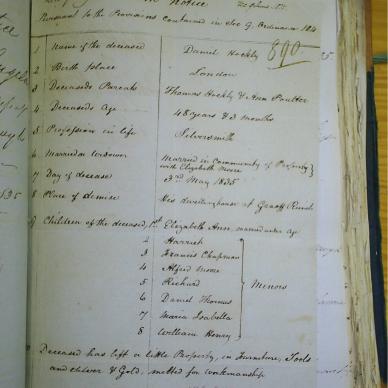 Notice
Pursuant to the Provisions contained in Sec 9. Ordinance 104
890
1 Name of the deceased Daniel Hockly
2 Birth Place London
3 Deceaseds Parents Thomas Hockly & Ann Poulter
4 Deceaseds Age 48 years & 3 months
5 Profession in life Silversmith
6 Married or widower Married in Community of Property
with Elizabeth Moore
7 Day of decease 3rd May 1835
8 Place of demise His dwellinghouse at Graaff Reinet
9 Children of the deceased, 1st Elizabeth Ann, married under age
2 Harriet
3 Francis Chapman
4 Alfred Moore
5 Richard
6 Daniel Thomas
7 Maria Isabella
8 William Henry
Minors
Deceased has left a little Property, in Furniture, Tools
and Silver & Gold, melted for workmanship